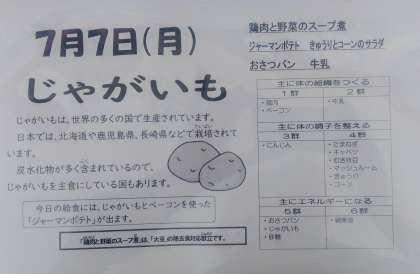 7月7日(月)
じゃがいも
じゃがいもは、世界の多くの国で生産されています。
日本では、北海道や鹿児島県、長崎県などで栽培されて
います。
炭水化物が多く含まれているので、
じゃがいもを主食にしている国もあります。
今日の給食には、じゃがいもとベーコンを使った
「ジャーマンポテト」が出ます。
「鶏肉と野菜のスープ煮」は、「大豆」の除去食対応献立です。
鶏肉と野菜のスープ煮
ジャーマンポテト きゅうりとコーンのサラダ
おさつパン 牛乳
主に体の組織をつくる
1群 2群
・鶏肉
・ベーコン
・牛乳
主に体の調子を整える
3群 4群
・にんじん
・たまねぎ
・キャベツ
・マッシュルーム
・きゅうり
・コーン
主にエネルギーになる
5群 6群
・おさつパン
・じゃがいも
・砂糖